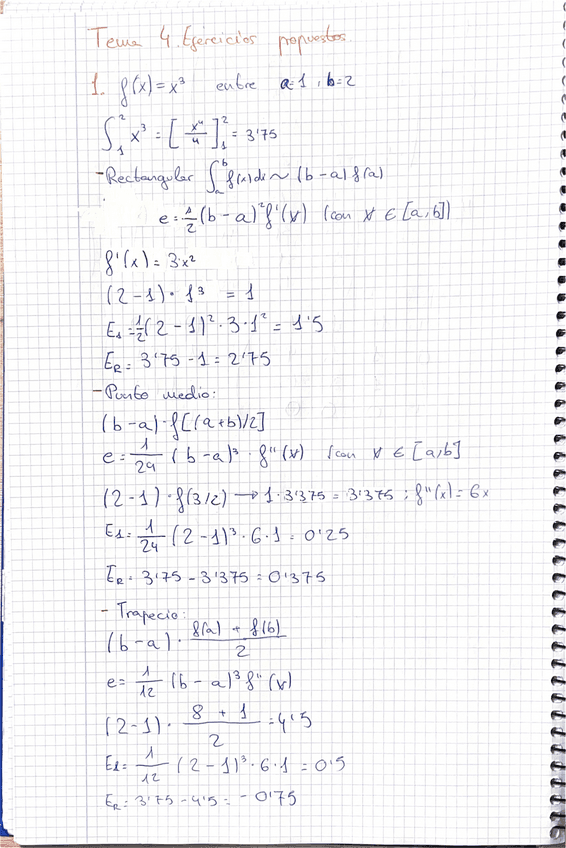 Tema 4. Ejercicios propuestos.
1. f(x) = x³ entre a=1, b=2
∫₁² x³ = [x⁴/4]₁² = 3'75
- Rectangular ∫ₐᵇ f(x)dx ~ (b-a) f(a)
e = 1/2 (b-a)² f'(ɣ) (con ɣ ∈ [a,b])
f'(x) = 3·x²
(2-1) · 1³ = 1
E₁ = 1/2 (2-1)² · 3·1² = 1'5
E_R = 3'75 - 1 = 2'75
- Punto medio:
(b-a)·f[(a+b)/2]
e = 1/24 (b-a)³ · f''(ɣ) (con ɣ ∈ [a,b]
(2-1) · f(3/2) → 1·3'375 = 3'375 ; f''(x) = 6x
E1 = 1/24 (2-1)³ · 6·1 = 0'25
E_R = 3'75 - 3'375 = 0'375
- Trapecio:
(b-a) · (f(a) + f(b))/2
e = 1/12 (b-a)³ f''(ɣ)
(2-1) · (8 + 1)/2 = 4'5
E1 = 1/12 (2-1)³ · 6·1 = 0'5
E_R = 3'75 - 4'5 = -0'75